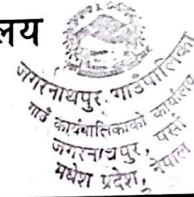 लय
जगरनाथपुर गाउँपालिका
गाउँ कार्यपालिकाको कार्यालय
जगरनाथपुर, पर्सा
मधेश प्रदेश, नेपाल